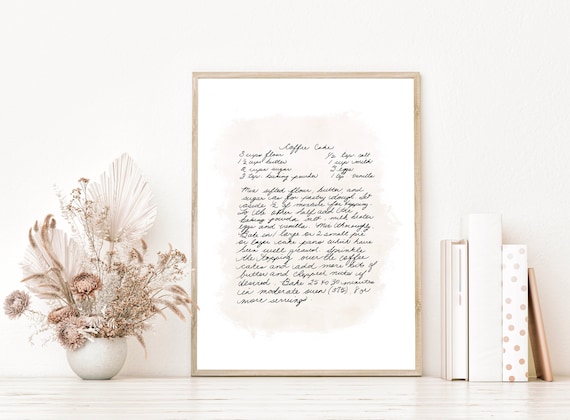 Coffee Cake
3 cups flour ½ tsp salt
1½ cups butter 1 cup milk
2 cups sugar 3 eggs
3 tsp baking powder 1 tsp vanilla
Mix sifted flour, butter and
sugar as for pastry dough. Set
aside ½ of mixture for topping
To the other half add the
baking powder, salt, milk beaten
eggs and vanilla. Mix thoroughly
Bake in large or 2 small pie
or layer cake pans which have
been well greased. Sprinkle
the topping over the coffee
cakes and add more bits of
butter and chopped nuts if
desired. Bake 25 to 30 minutes
in moderate oven (375) for
more servings